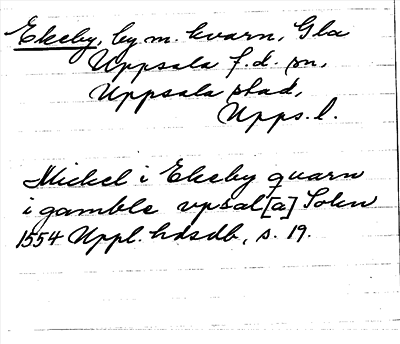 Ekeby, by m. kvarn, Gla
Uppsala f.d. sn,
Uppsala stad,
Upps. l.
Mickel i Ekeby quarn
i gamble vpsal[a] Sokn
1554 Uppl. hdsdb, s. 19.